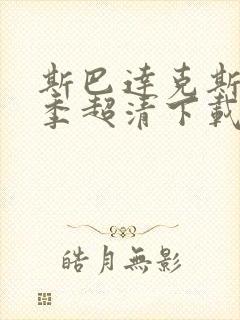 斯巴達克斯
季超清下載
皓月無影